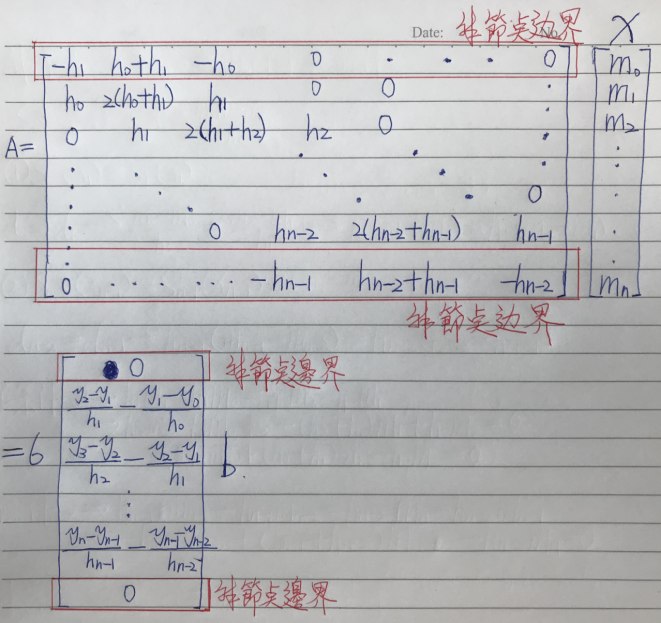 Date: 非節点边界 No. X
-h₁ h₀+h₁ -h₀ 0 · · · 0 m₀
h₀ 2(h₀+h₁) h₁ 0 0 · m₁
0 h₁ 2(h₁+h₂) h₂ 0 · m₂
A=
0
0 hn-2 2(hn-2+hn-1) hn-1
0 · · · · · · -hn-1 hn-2+hn-1 -hn-2 mn
非節点边界
0 非節点邊界
y₂-y₁/h₁ - y₁-y₀/h₀
=6 y₃-y₂/h₂ - y₂-y₁/h₁ b.
⋮
yn-yn-1/hn-1 - yn-1-yn-2/hn-2
0 非節点邊界